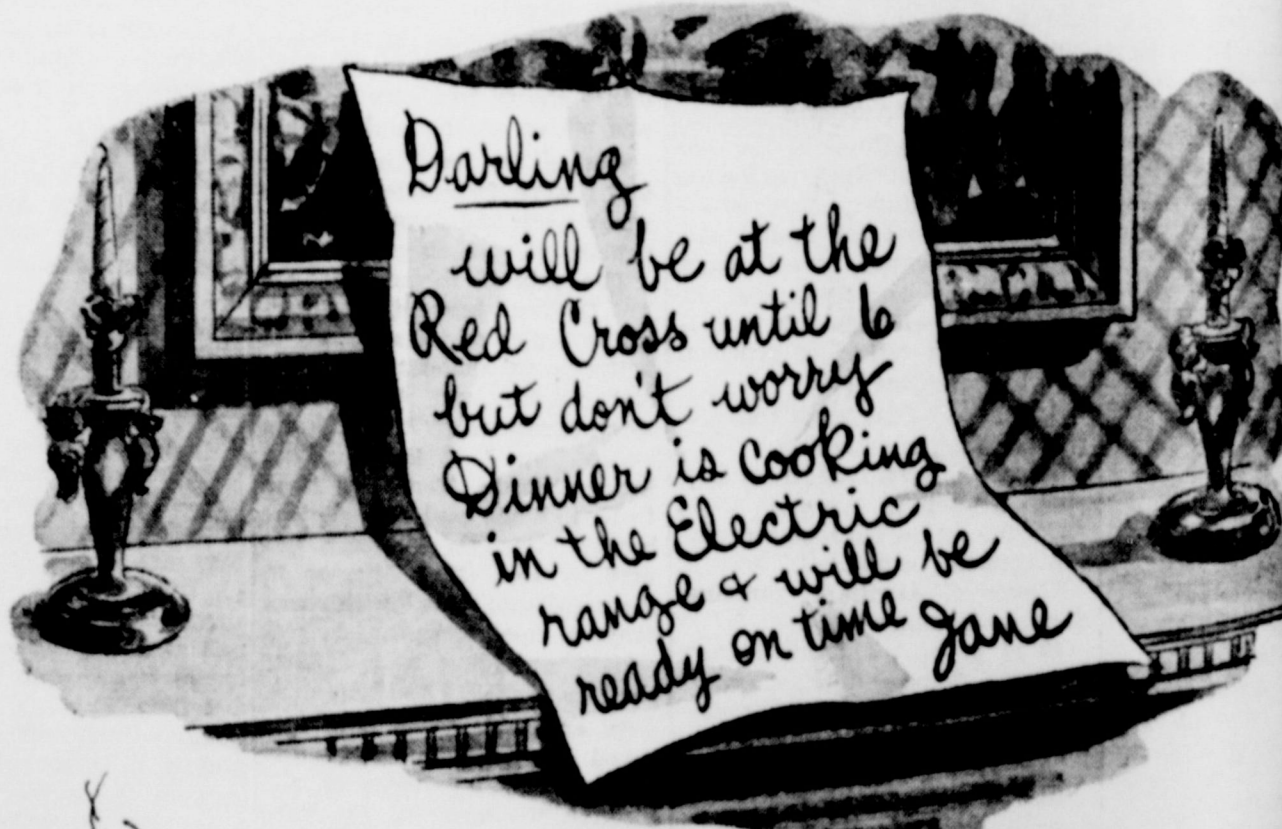 Darling
will be at the
Red Cross until 6
but don't worry
Dinner is cooking
in the Electric
range & will be
ready on time Jane